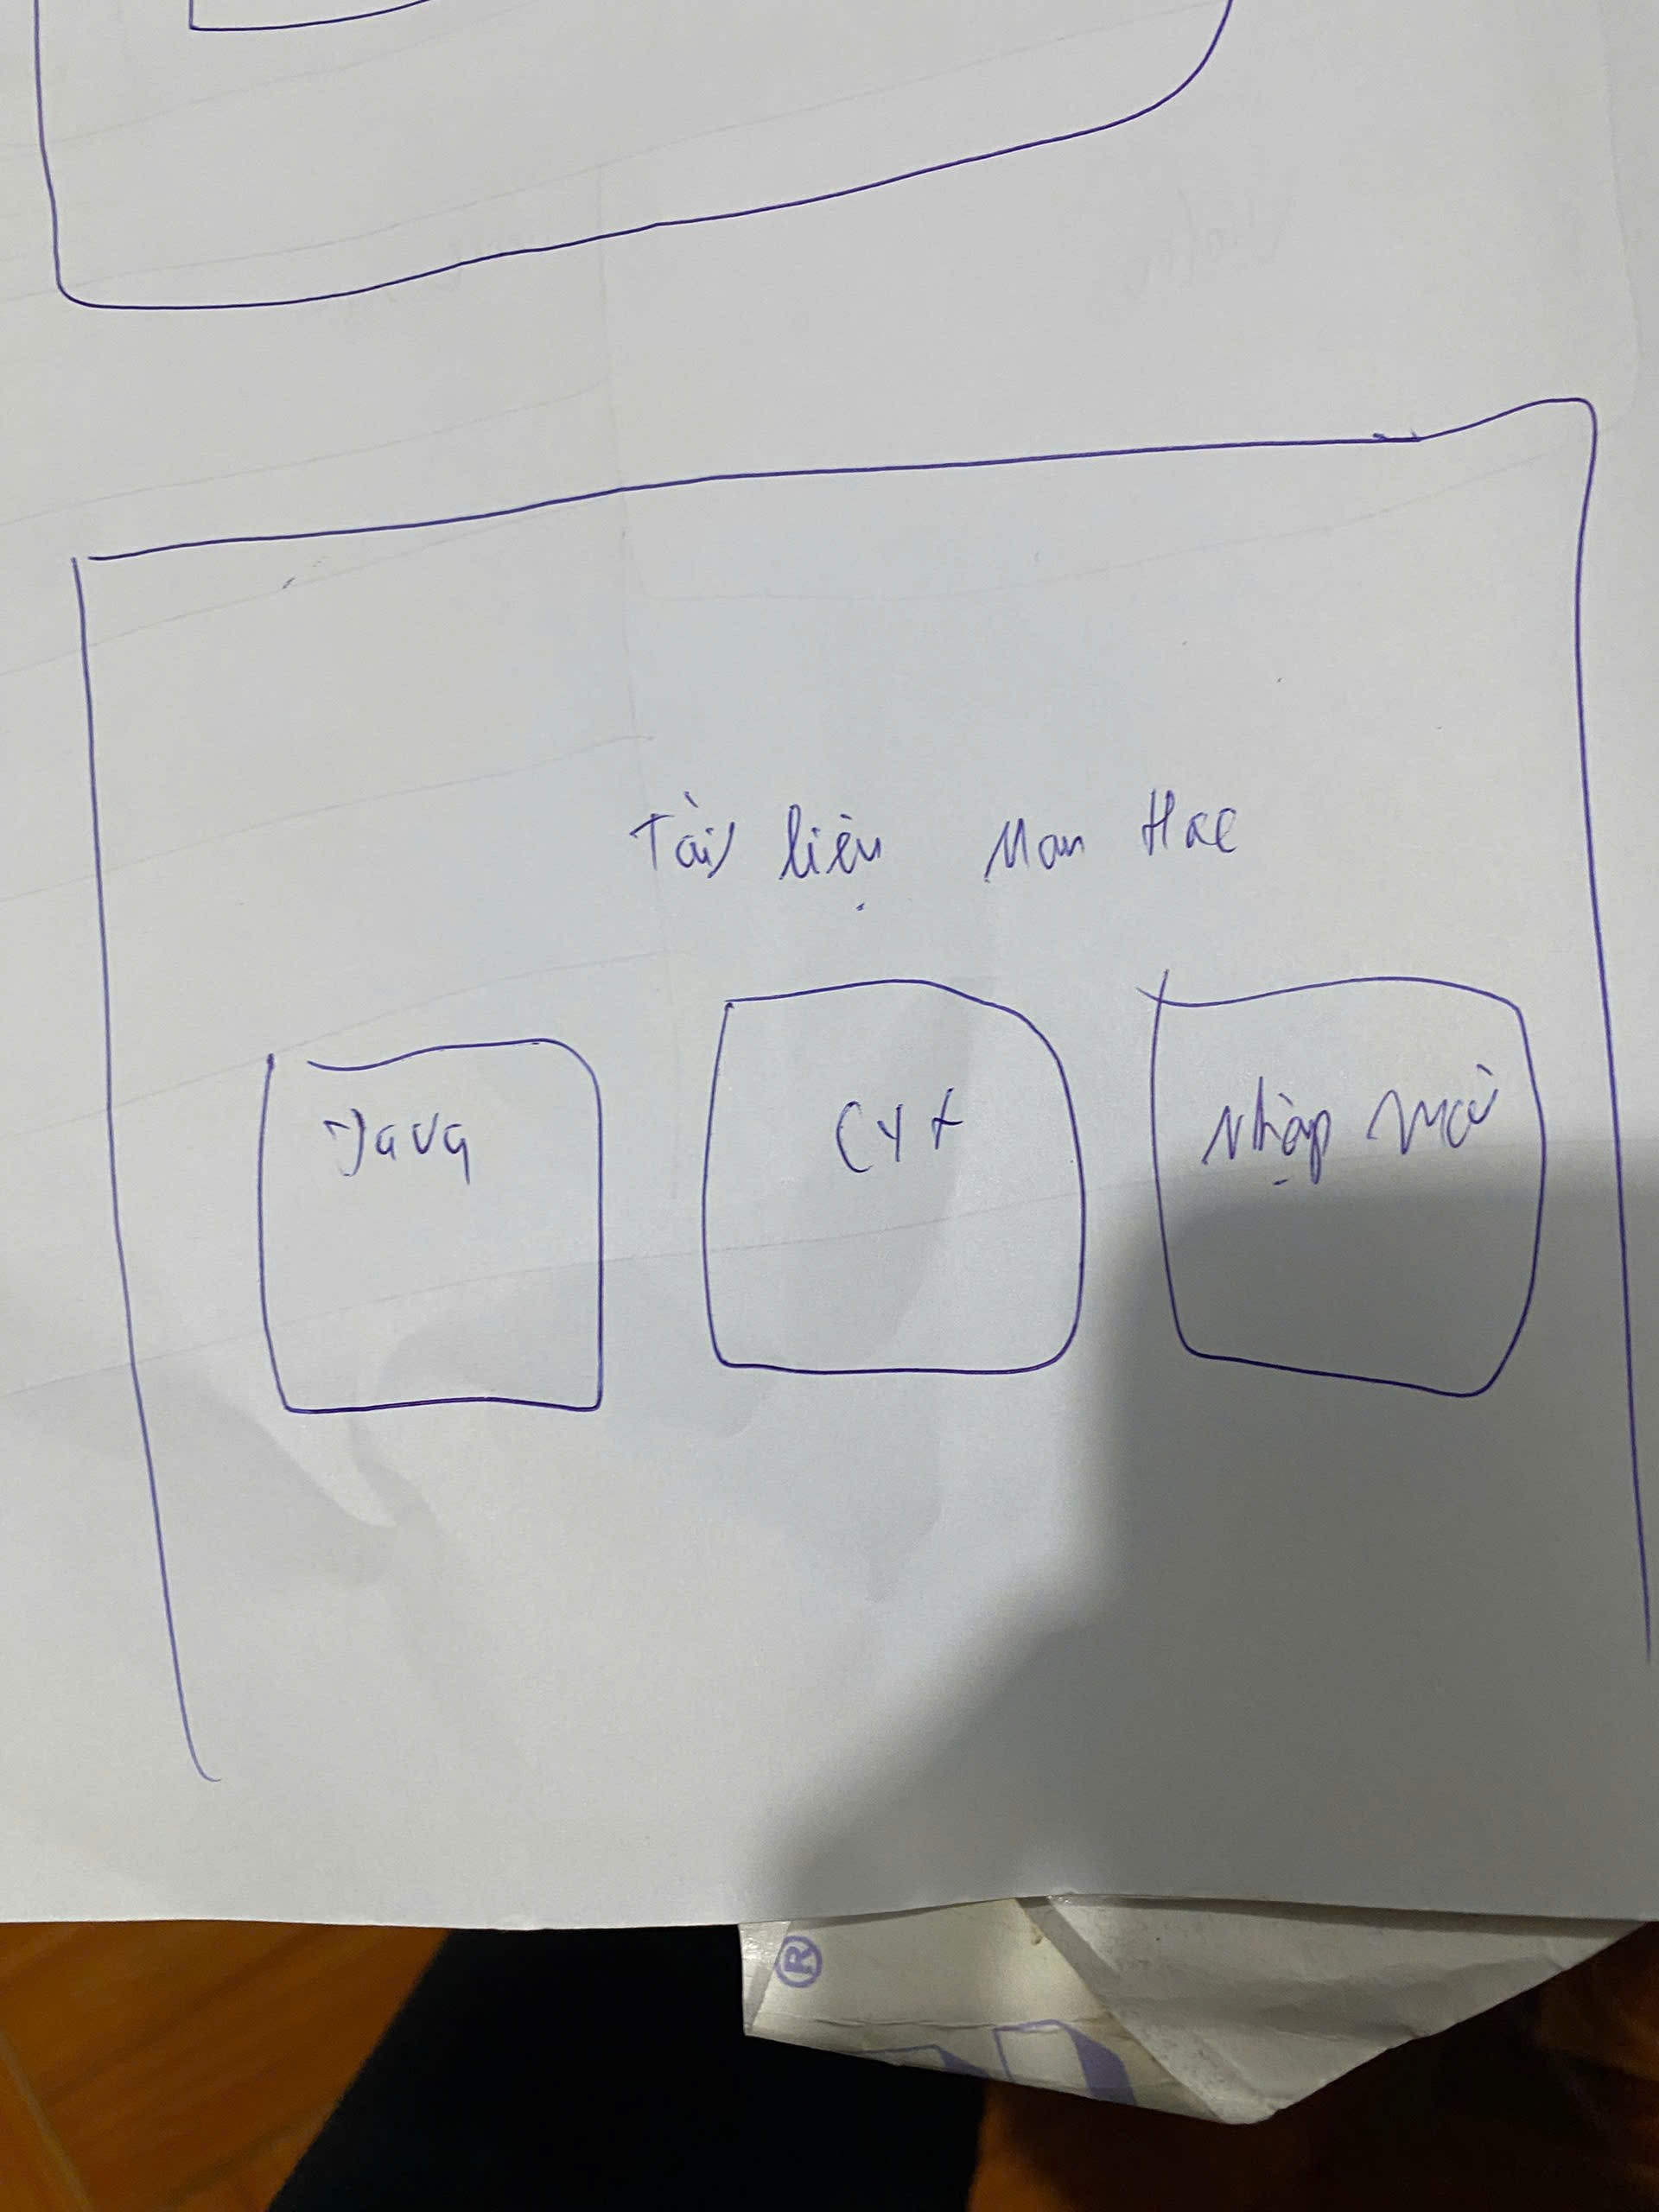 Tài liệu Mon Hoc
Java
Nhập
®